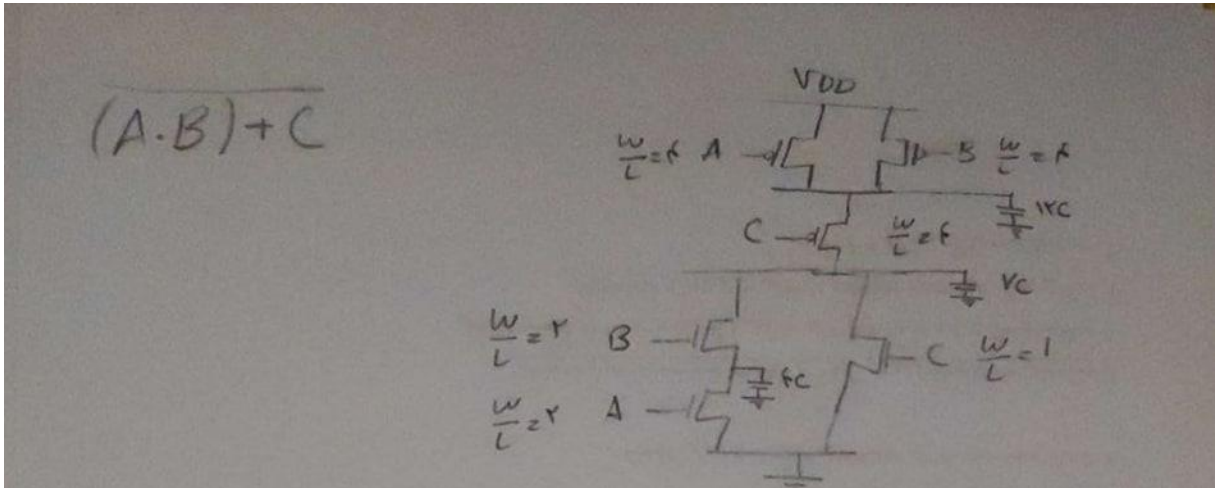 (A·B)+C
VDD
W/L=۴ A B W/L=۴
۱۲C
C W/L=۴
۷C
W/L=۲ B C W/L=۱
۴C
W/L=۲ A